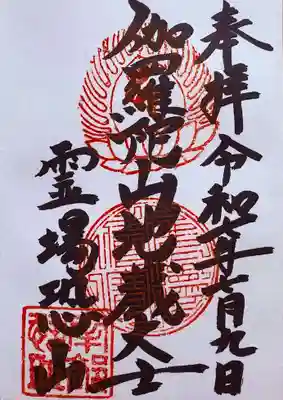 奉拝 令和年月九日
伽羅陀山地蔵大士
霊場恐山